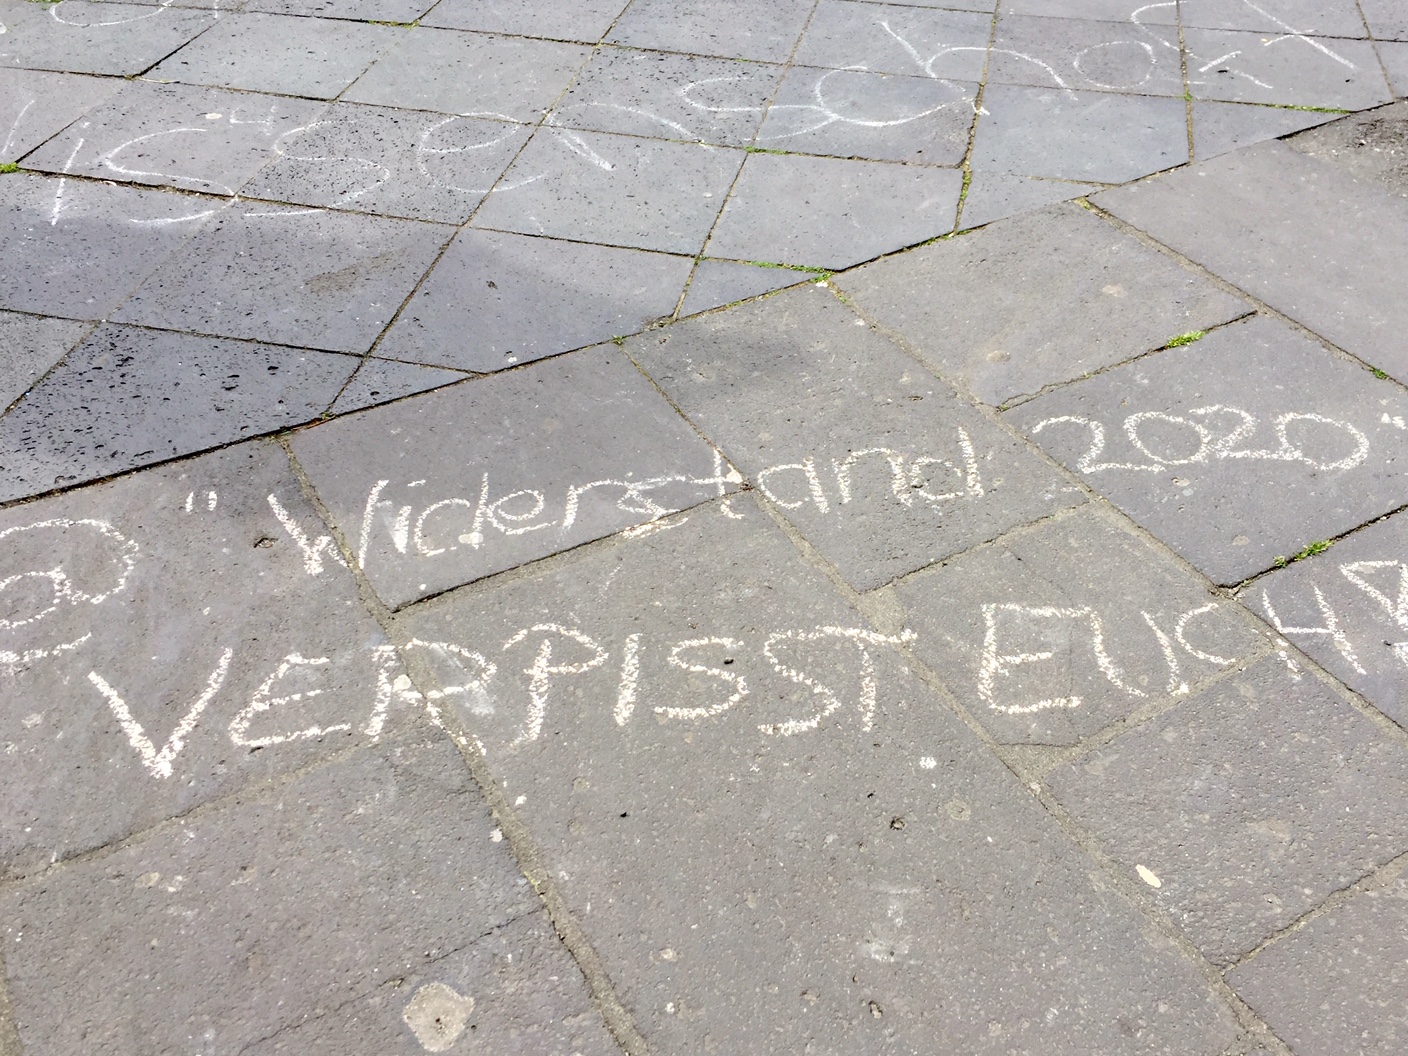 Wissenschaft
@ "Widerstand 2020"
VERPISST EUCH